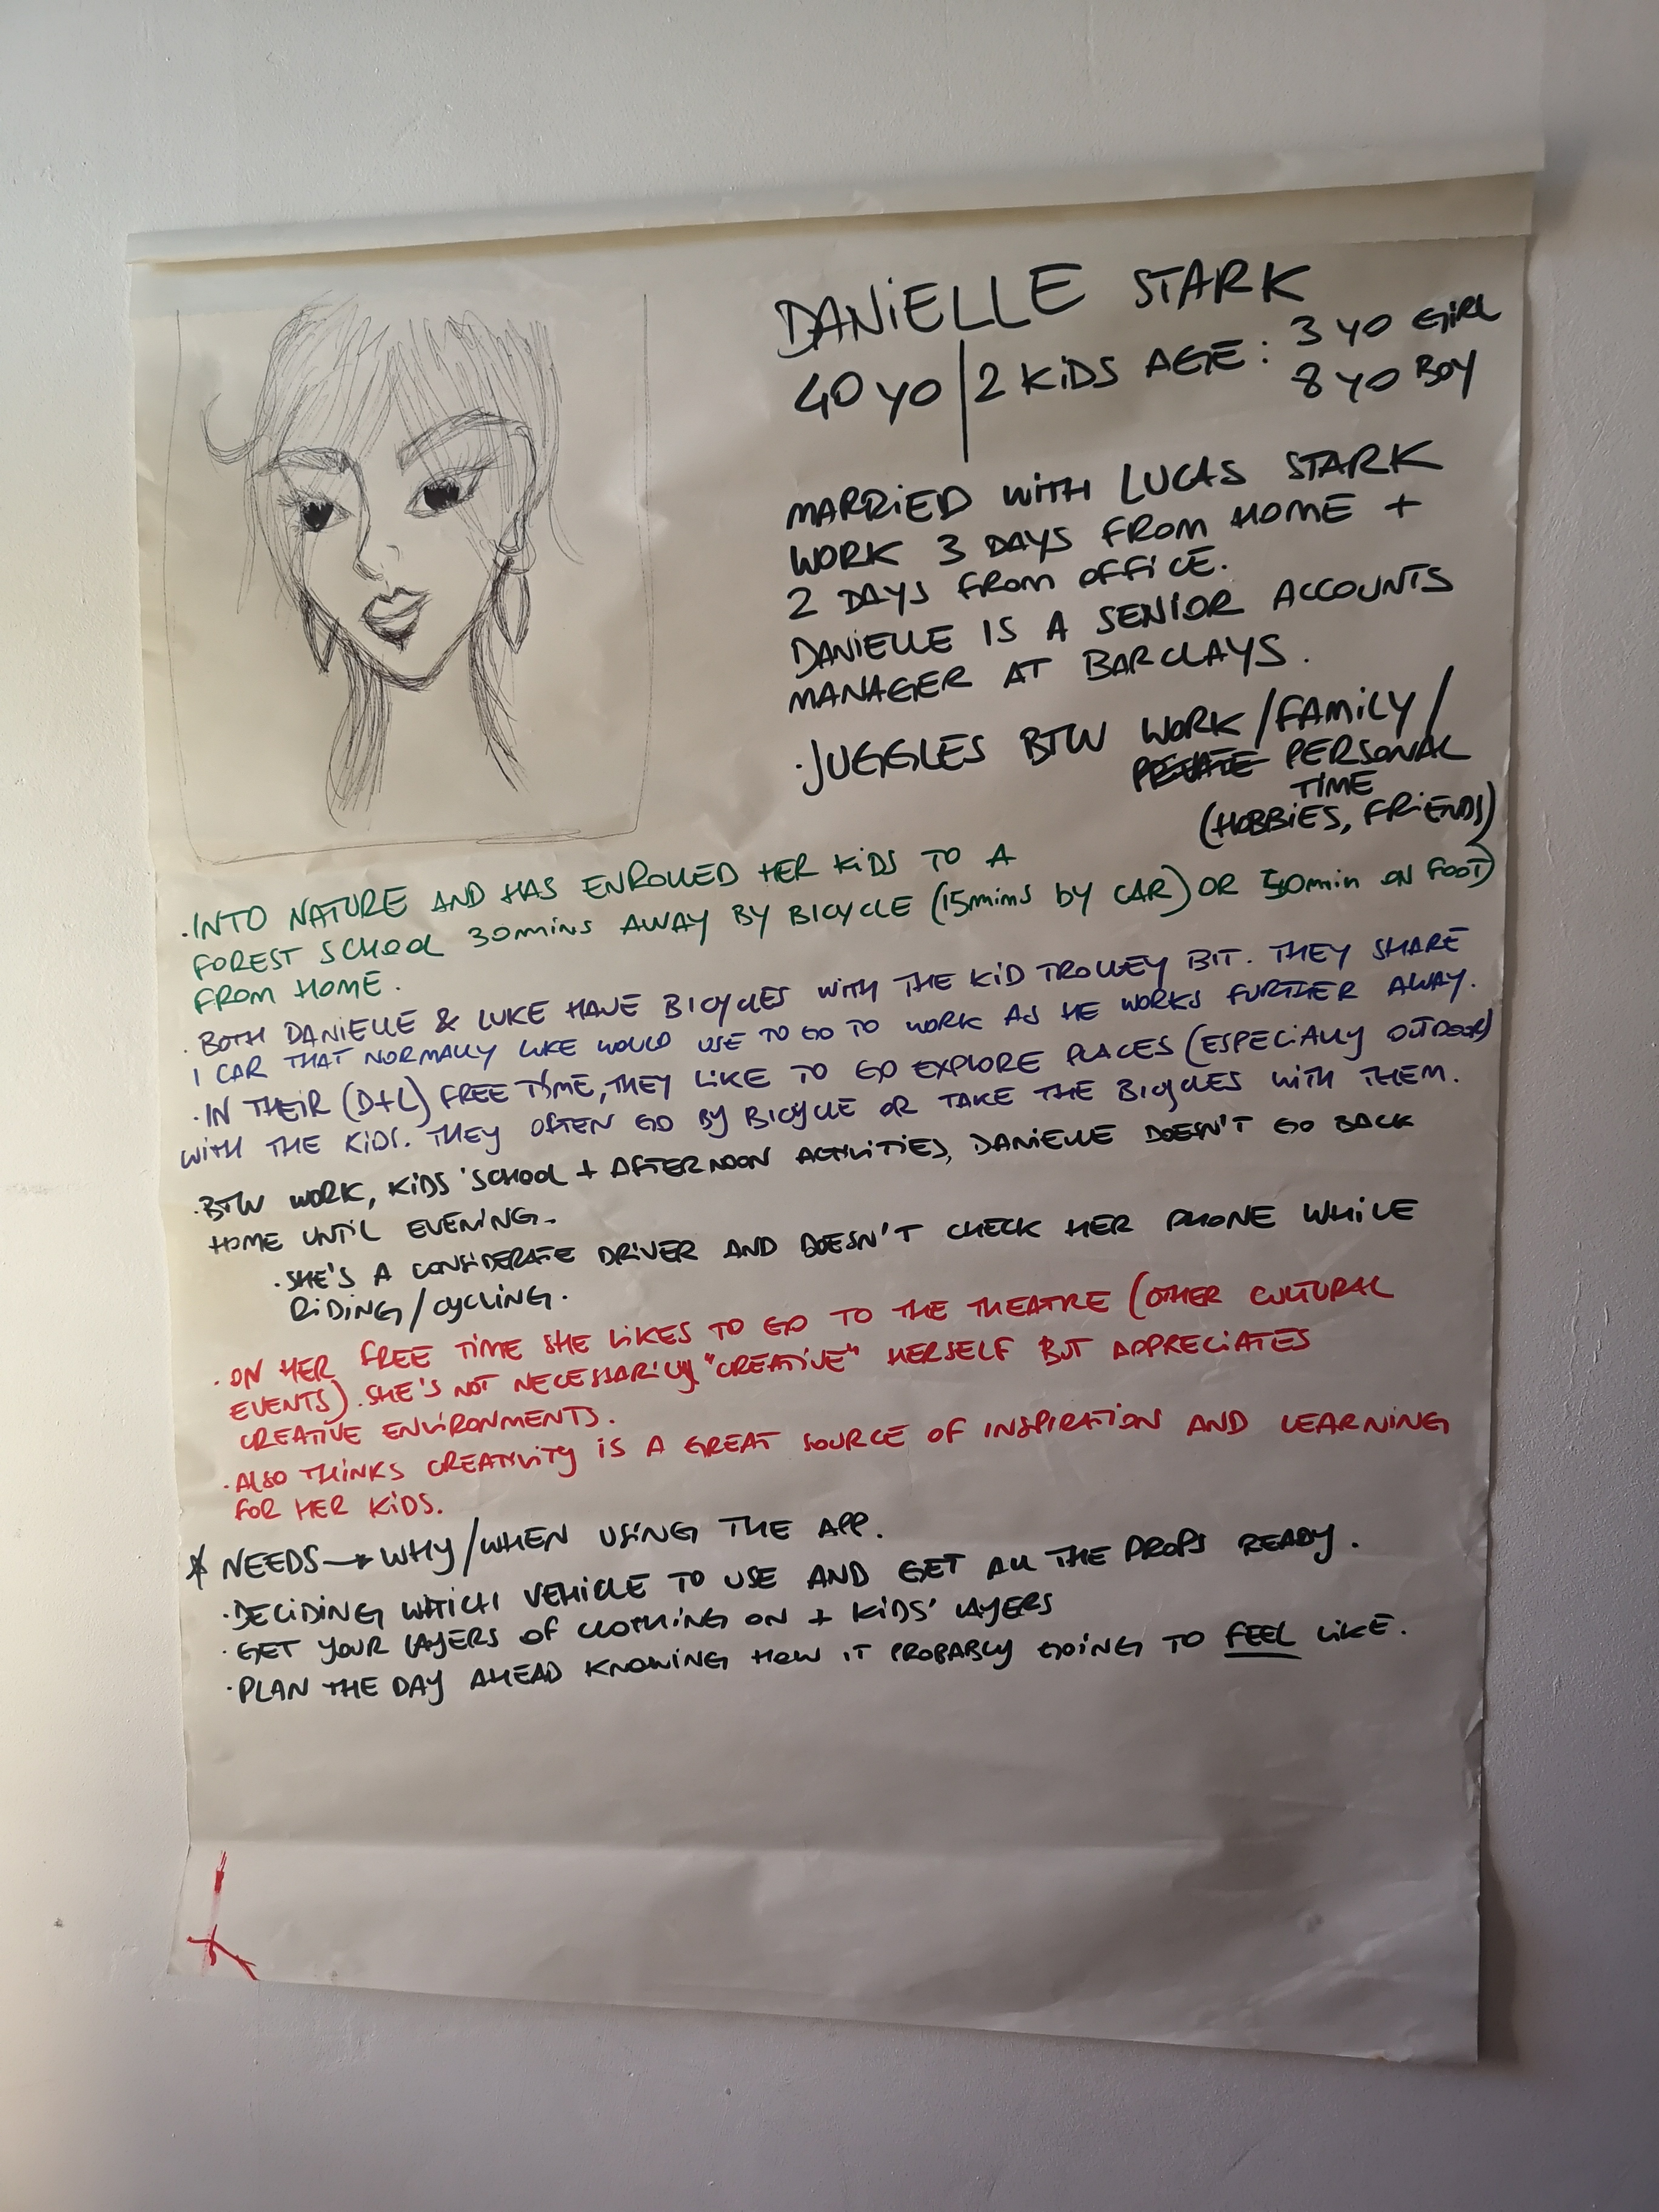 DANIELLE STARK
40 YO | 2 KIDS AGE: 3 YO GIRL
8 YO BOY
MARRIED WITH LUCAS STARK
WORK 3 DAYS FROM HOME +
2 DAYS FROM OFFICE.
DANIELLE IS A SENIOR ACCOUNTS
MANAGER AT BARCLAYS.
·JUGGLES BTW WORK/FAMILY/
PRIVATE PERSONAL
TIME
(HOBBIES, FRIENDS)
·INTO NATURE AND HAS ENROLLED HER KIDS TO A
FOREST SCHOOL 30mins AWAY BY BICYCLE (15mims by CAR) OR min ON FOOT)
FROM HOME.
·BOTH DANIELLE & LUKE HAVE BICYCLES WITH THE KID TROLLEY BIT. THEY SHARE
1 CAR THAT NORMALLY LUKE WOULD USE TO GO TO WORK AS HE WORKS FURTHER AWAY.
·IN THEIR (D+L) FREE TIME, THEY LIKE TO GO EXPLORE PLACES (ESPECIALLY OUTDOOR)
WITH THE KIDS. THEY OFTEN GO BY BICYCLE OR TAKE THE BICYCLES WITH THEM.
·BTW WORK, KIDS' SCHOOL + AFTERNOON ACTIVITIES, DANIELLE DOESN'T GO BACK
HOME UNTIL EVENING.
·SHE'S A CONSIDERATE DRIVER AND DOESN'T CHECK HER PHONE WHILE
RIDING/CYCLING.
·ON HER FREE TIME SHE LIKES TO GO TO THE THEATRE (OTHER CULTURAL
EVENTS). SHE'S NOT NECESSARILY "CREATIVE" HERSELF BUT APPRECIATES
CREATIVE ENVIRONMENTS.
·ALSO THINKS CREATIVITY IS A GREAT SOURCE OF INSPIRATION AND LEARNING
FOR HER KIDS.
* NEEDS → WHY/WHEN USING THE APP.
·DECIDING WHICH VEHICLE TO USE AND GET ALL THE PROPS READY.
·GET YOUR LAYERS OF CLOTHING ON + KIDS' LAYERS
·PLAN THE DAY AHEAD KNOWING HOW IT PROBABLY GOING TO FEEL LIKE.